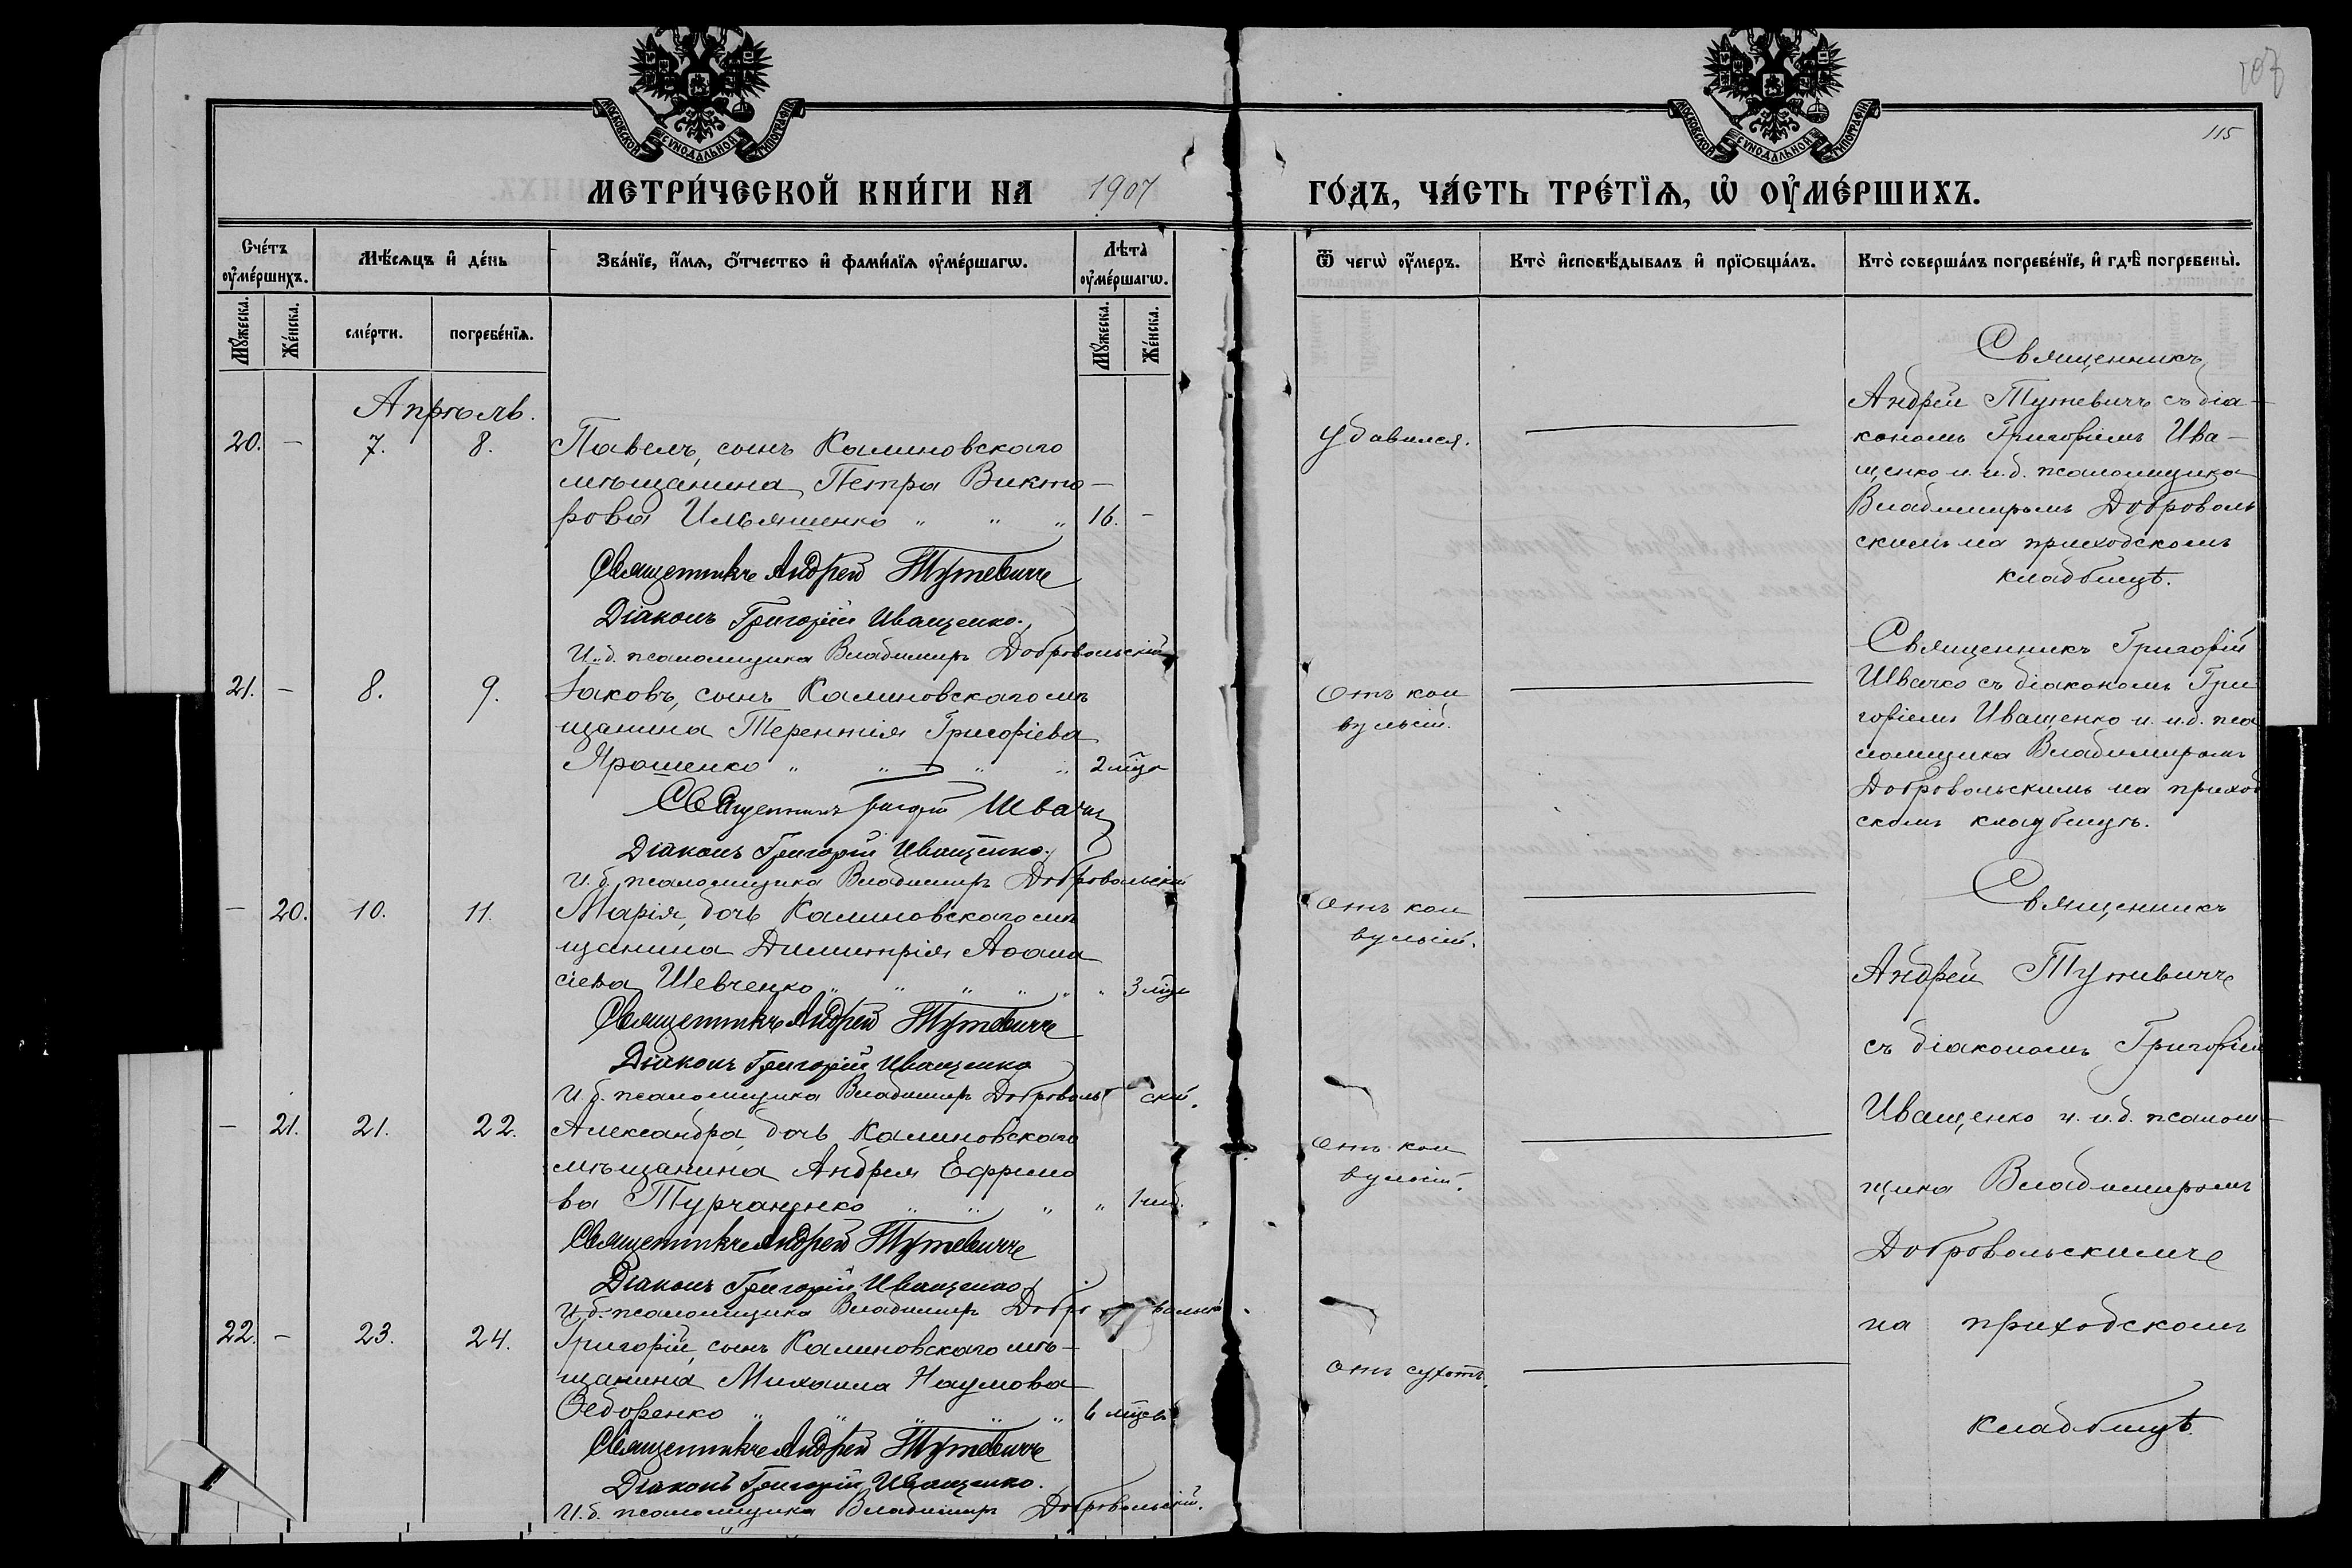 107
115
МОСКОВСКОЙ СѴНОДАЛЬНОЙ ТИПОГРАФІИ
МОСКОВСКОЙ СѴНОДАЛЬНОЙ ТИПОГРАФІИ
МЕТРИ́ЧЕСКОЙ КНИ́ГИ НА 1907 ГО́ДЪ, ЧА́СТЬ ТРЕ́ТЇѦ, Ѡ҆ ОУ҆МЕ́РШИХЪ.
Сче́тъ оу҆ме́ршихъ.
Мѣ́сѧцъ и҆ де́нь
Зва́нїе, и҆́мѧ, ѻ҆́тчество и҆ фами́лїѧ оу҆ме́ршагѡ.
Лѣта̀ оу҆ме́ршагѡ.
Ѿ чегѡ̀ оу҆́меръ.
Кто̀ и҆сповѣ́дывалъ и҆ прїѻбща́лъ.
Кто̀ соверша́лъ погребе́нїе, и҆ гдѣ̀ погребены̀.
Мꙋ́жеска.
Же́нска.
сме́рти.
погребе́нїѧ.
Мꙋ́жеска.
Же́нска.
Апрѣль.
20. — 7. 8. Павелъ, сынъ Калиновскаго
мѣщанина Петра Викто-
рова Ильяшенко " " " 16. —
Священникъ Андрей Тутевичъ
Діаконъ Григорій Иващенко.
И. д. псаломщика Владимиръ Добровольскій
удавился.
Священникъ
Андрей Тутевичъ съ діа-
кономъ Григоріемъ Ива-
щенко и и. д. псаломщика
Владимиромъ Доброволь
скимъ на приходскомъ
кладбищѣ.
21. — 8. 9. Іаковъ, сынъ Калиновскаго мѣ
щанина Терентія Григоріева
Ярошенко " " " " 2 мѣц
Священникъ Григорій Швачко
Діаконъ Григорій Иващенко.
И. д. псаломщика Владимиръ Добровольскій
отъ кон
вульсій.
Священникъ Григорій
Швачко съ діакономъ Гри
горіемъ Иващенко и и. д. пса
ломщика Владимиромъ
Добровольскимъ на приход
скомъ кладбищѣ.
— 20. 10. 11. Марія, дочь Калиновскаго мѣ
щанина Димитрія Аѳана
сіева Шевченко " " " " " " 3 мѣц
Священникъ Андрей Тутевичъ
Діаконъ Григорій Иващенко
И. д. псаломщика Владимиръ Добровольскій.
отъ кон
вульсій.
Священникъ
Андрей Тутевичъ
съ діакономъ Григоріем
Иващенко и и. д. псалом-
щика Владимиромъ
Добровольскимъ
на приходскомъ
кладбищѣ.
— 21. 21. 22. Александра, дочь Калиновскаго
мѣщанина Андрея Ефримо
ва Турчаненко " " " " 1 нед.
Священникъ Андрей Тутевичъ
Діаконъ Григорій Иващенко.
И. д. псаломщика Владимиръ
отъ кон
вульсій.
22. — 23. 24. Григорій, сынъ Калиновскаго мѣ-
щанина Михаила Наумова
Ѳедоренко " " " " " 6 мѣцевъ
Священникъ Андрей Тутевичъ
Діаконъ Григорій Иващенко.
И. д. псаломщика Владимиръ Добровольскій.
отъ сухотъ.